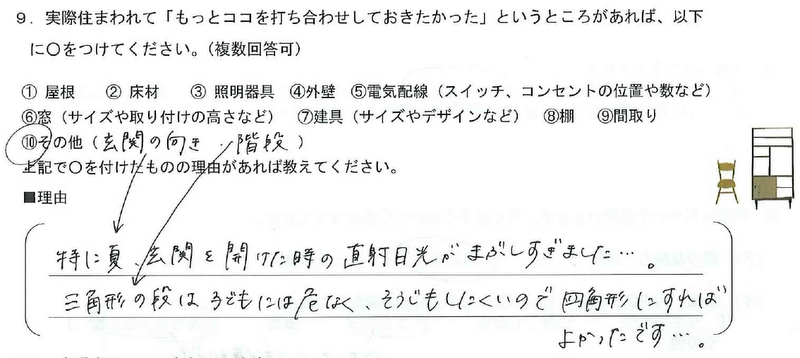 9．実際住まわれて「もっとココを打ち合わせしておきたかった」というところがあれば、以下
に○をつけてください。（複数回答可）
① 屋根　② 床材　③ 照明器具　④外壁　⑤電気配線（スイッチ、コンセントの位置や数など）
⑥窓（サイズや取り付けの高さなど）　⑦建具（サイズやデザインなど）　⑧棚　⑨間取り
⑩その他（玄関の向き、階段）
上記で○を付けたものの理由があれば教えてください。
■理由
特に夏、玄関を開けた時の直射日光がまぶしすぎました…。
三角形の段は子どもには危なく、そうじもしにくいので四角形にすれば
よかったです…。